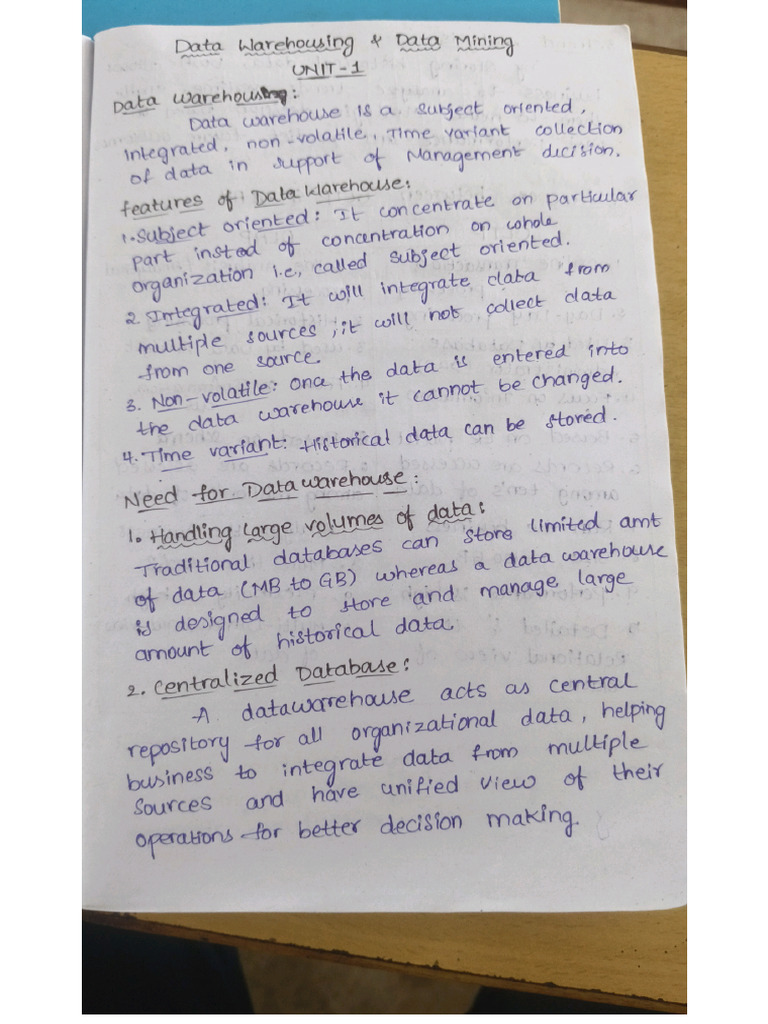 Data Warehousing & Data Mining
UNIT-1
Data Warehousing:
Data warehouse is a subject oriented,
integrated, non-volatile, Time variant collection
of data in support of Management dicision.
features of Data Warehouse:
1. Subject oriented: It concentrate on particular
part insted of concentration on whole
organization i.e., called subject oriented.
2. Integrated: It will integrate data from
multiple sources ; it will not collect data
from one source.
3. Non-volatile: once the data is entered into
the data warehouse it cannot be changed.
4. Time variant: Historical data can be stored.
Need for Data warehouse:
1. Handling large volumes of data:
Traditional databases can store limited amt
of data (MB to GB) whereas a data warehouse
is designed to store and manage large
amount of historical data.
2. Centralized Database:
A datawarehouse acts as central
repository for all organizational data, helping
business to integrate data from multiple
sources and have unified view of their
operations for better decision making.